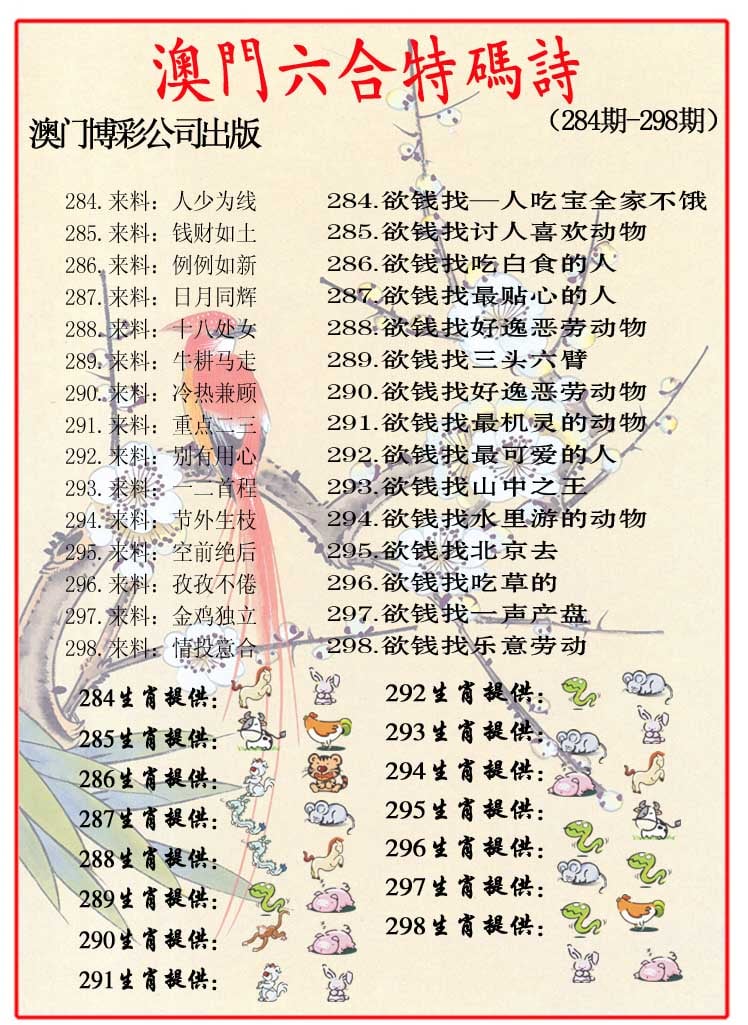 澳門六合特碼詩
澳门博彩公司出版
（284期-298期）
284.来料：人少为线 284.欲钱找一人吃宝全家不饿
285.来料：钱财如土 285.欲钱找讨人喜欢动物
286.来料：例例如新 286.欲钱找吃白食的人
287.来料：日月同辉 287.欲钱找最贴心的人
288.来料：十八处女 288.欲钱找好逸恶劳动物
289.来料：牛耕马走 289.欲钱找三头六臂
290.来料：冷热兼顾 290.欲钱找好逸恶劳动物
291.来料：重点二三 291.欲钱找最机灵的动物
292.来料：别有用心 292.欲钱找最可爱的人
293.来料：一二首程 293.欲钱找山中之王
294.来料：节外生枝 294.欲钱找水里游的动物
295.来料：空前绝后 295.欲钱找北京去
296.来料：孜孜不倦 296.欲钱找吃草的
297.来料：金鸡独立 297.欲钱找一声产盘
298.来料：情投意合 298.欲钱找乐意劳动
284生肖提供：
285生肖提供：
286生肖提供：
287生肖提供：
288生肖提供：
289生肖提供：
290生肖提供：
291生肖提供：
292生肖提供：
293生肖提供：
294生肖提供：
295生肖提供：
296生肖提供：
297生肖提供：
298生肖提供：